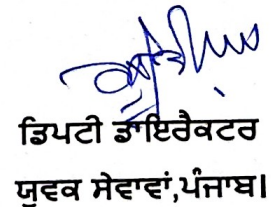 ਡਿਪਟੀ ਡਾਇਰੈਕਟਰ
ਯੁਵਕ ਸੇਵਾਵਾਂ,ਪੰਜਾਬ।